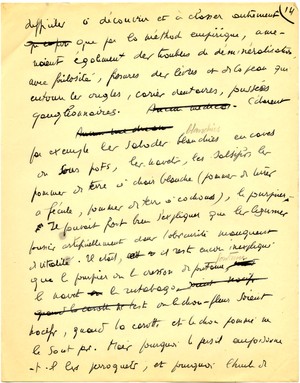 14
difficiles à découvrir et à classer autrement
que par la méthode empirique, ame-
naient également des troubles de déminéralisation
avec frilosité, fissures des lèvres et de la peau qui
entoure les ongles, caries dentaires, poussées
ganglionnaires. C'étaient
blanchies
par exemple les salades blanchies en caves
ou sous pots, les navets, les salsifis les
pommes de terre à chair blanche (pommes de terre
à fécule, pommes de terre à cochons), le pourpier.
Je pouvais fort bien expliquer que les légumes
poussés artificiellement dans l'obscurité manquent
de vitalité. Il était, et il reste encore inexpliqué
que le pourpier ou le cresson de fontaine
le navet ou le rutabaga
ou le chou-fleur soient
nocifs, quand la carotte et le chou pommé ne
le sont pas. Mais pourquoi le persil empoisonne
-t-il les perroquets, et pourquoi l'huile de